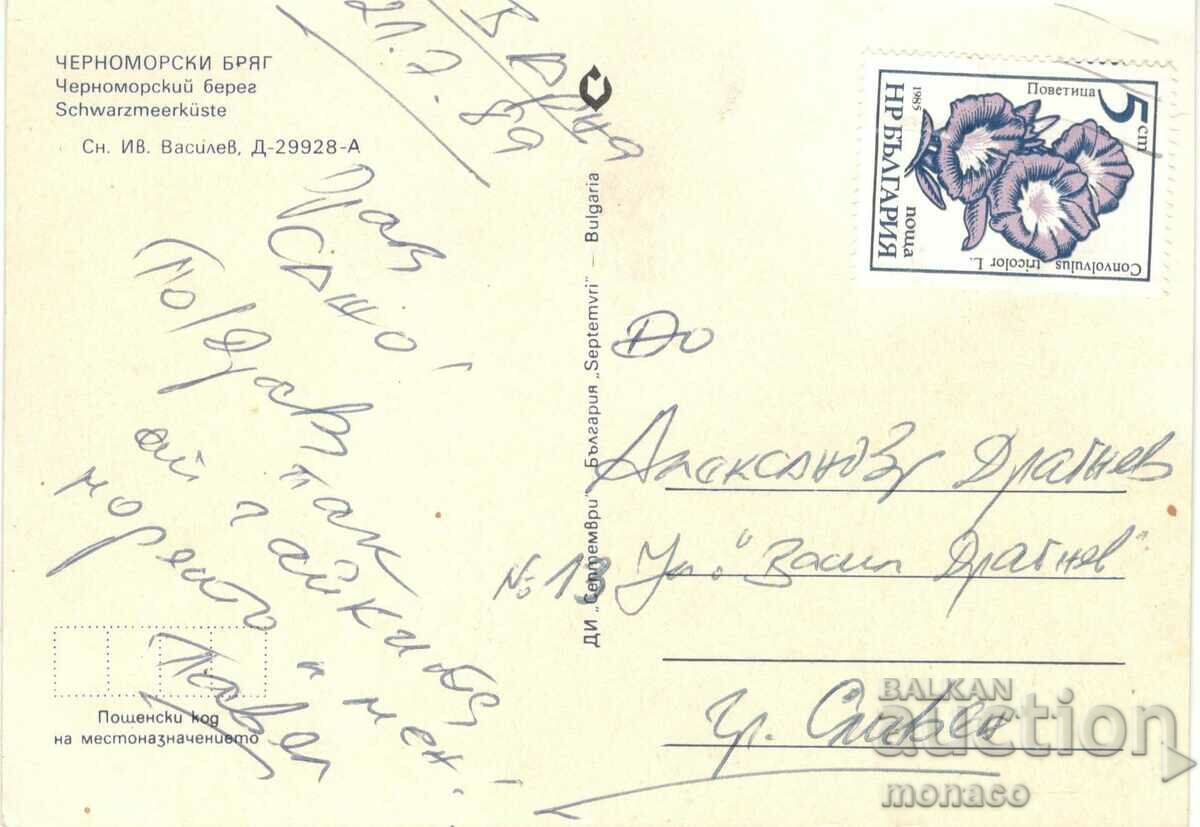 ЧЕРНОМОРСКИ БРЯГ
Черноморский берег
Schwarzmeerküste
Сн. Ив. Василев, Д-29928-А
Варна
21.7.89
Сашо!
Поздрави
пак
от
морето и мен!
Павел
Пощенски код
на местоназначението
ДИ „Септември" България „Septemvri" — Bulgaria
5 ст
Поветица
1985
НР БЪЛГАРИЯ
поща
Convolvulus
tricolor L.
До
Александър Драгнев
Ул. "Васил Драгнев"
№ 13
гр. Сливен
BALKAN
auction
monaco